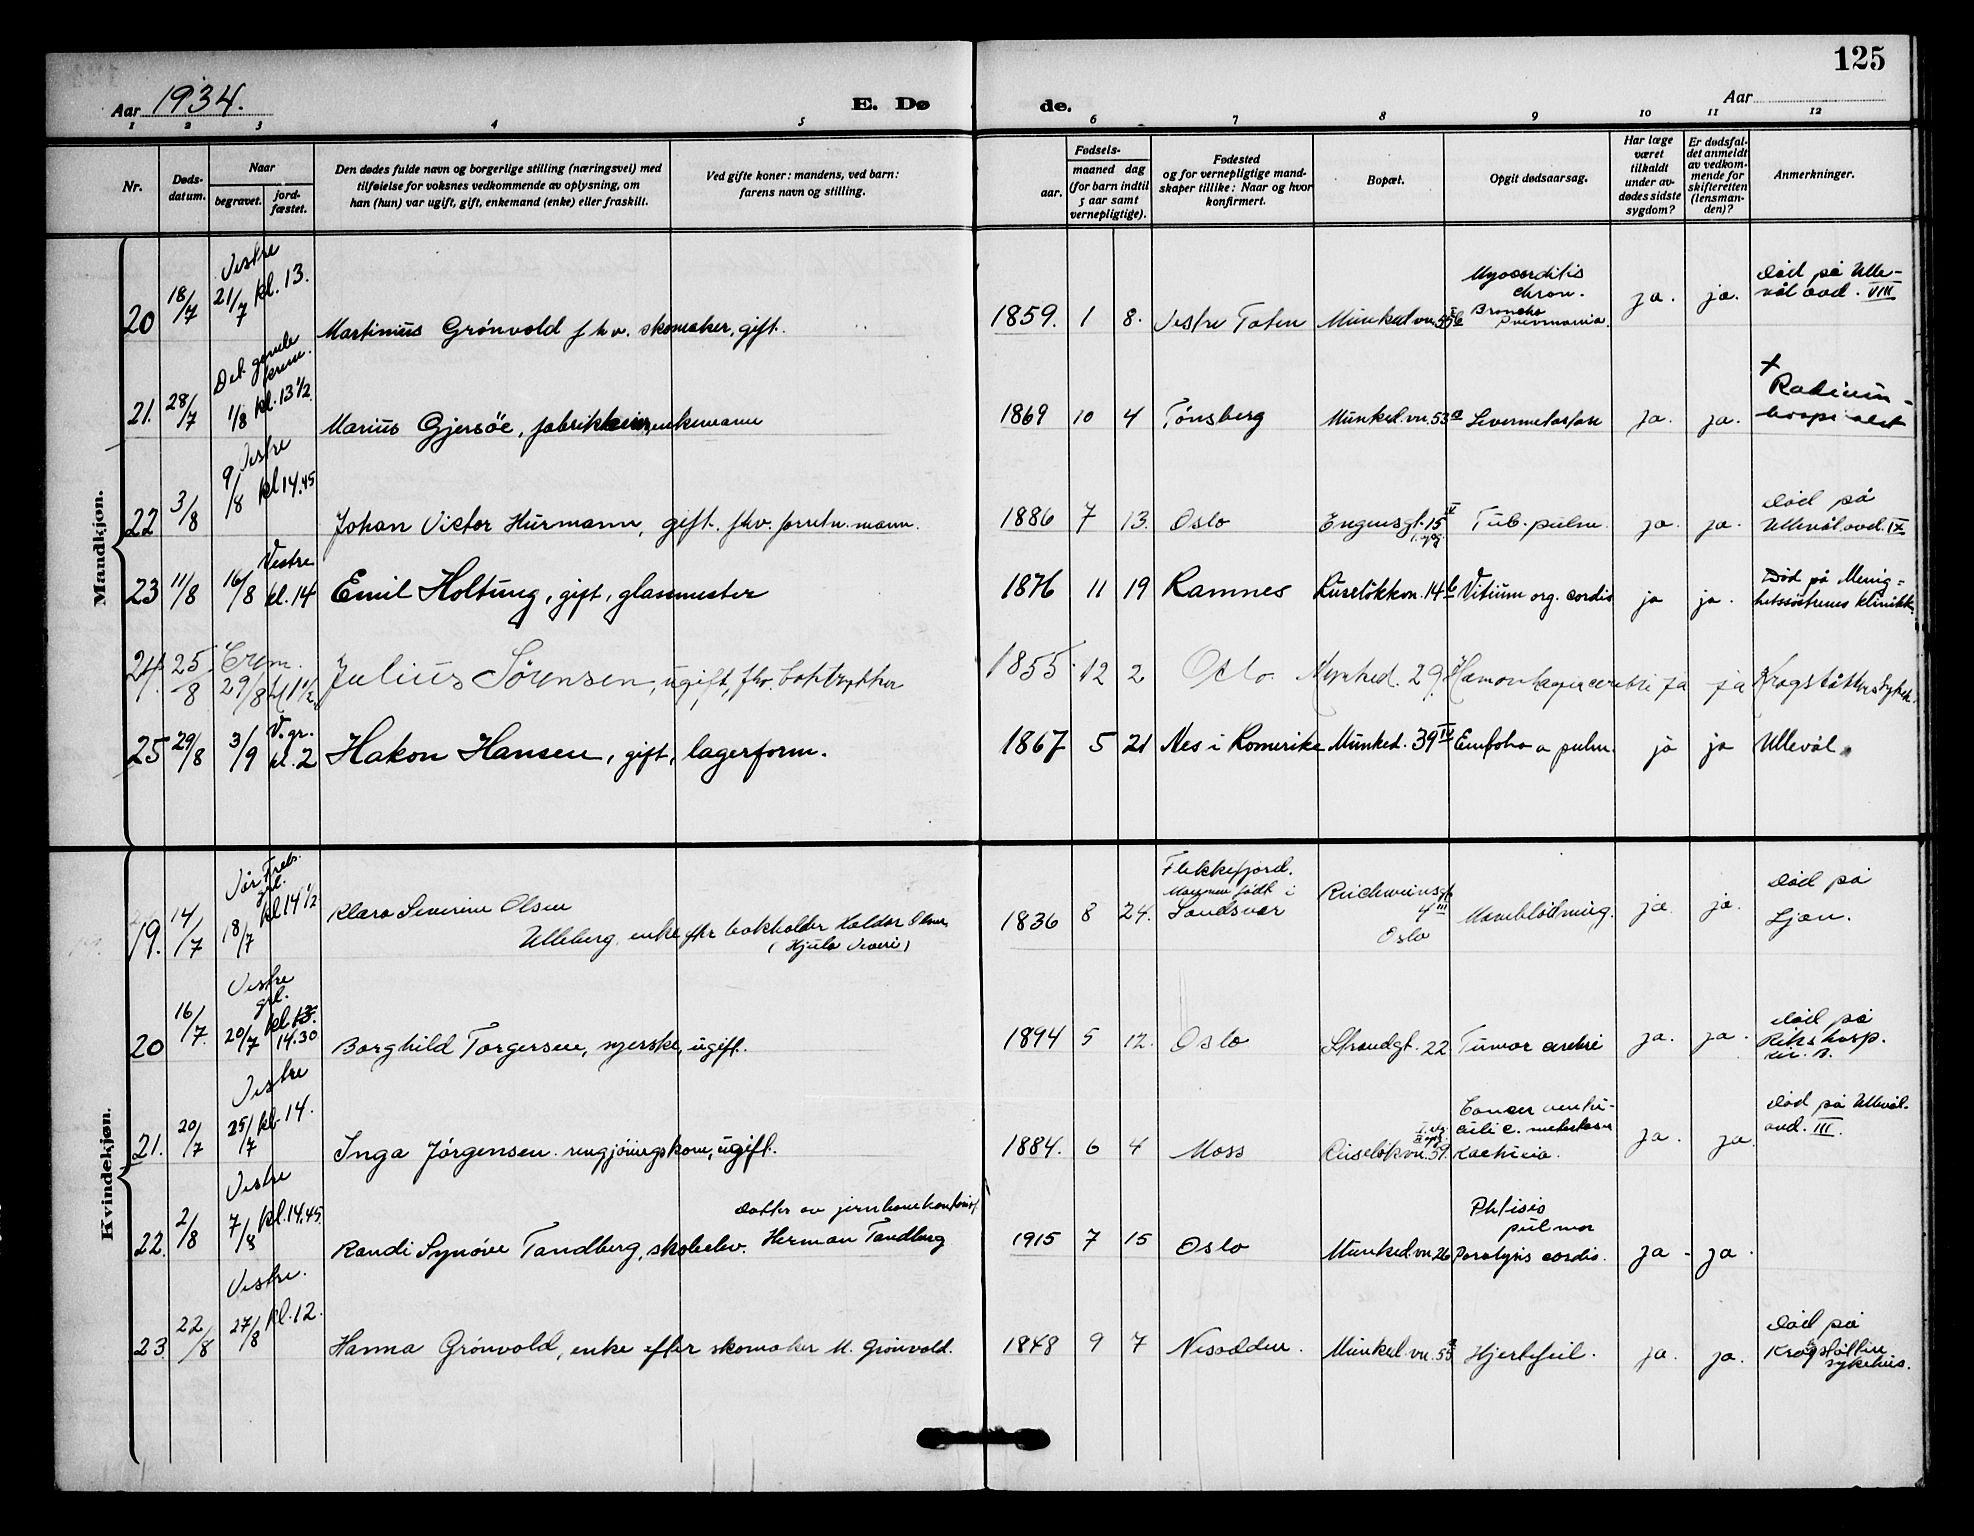 125
Aar 1934.
E. Dø
de.
Aar
1 2 3 4 5 6 7 8 9 10 11 12
Nr.
Døds-
datum.
Naar
begravet.
jord-
fæstet.
Den dødes fulde navn og borgerlige stilling (næringsvei) med
tilføielse for voksnes vedkommende av oplysning, om
han (hun) var ugift, gift, enkemand (enke) eller fraskilt.
Ved gifte koner: mandens, ved barn:
farens navn og stilling.
Fødsels-
aar.
maaned dag
(for barn indtil
5 aar samt
vernepligtige).
Fødested
og for vernepligtige mand-
skaper tillike: Naar og hvor
konfirmert.
Bopæl.
Opgit dødsaarsag.
Har læge
været
tilkaldt
under av-
dødes sidste
sygdom?
Er dødsfal-
det anmeldt
av vedkom-
mende for
skifteretten
(lensman-
den)?
Anmerkninger.
Mandkjøn.
20 18/7 Vestre 21/7 kl. 13. Martinius Grønvold fhv. skomaker, gift. 1859. 1 8. Vestre Toten Munked.vn. 55 Myocarditis chron. Broncho pneumonia. ja. ja. Død på Ulle-
vål avd. VIII
21. 28/7 Det gamle krem. 1/8 kl. 13 1/2 Marius Gjersöe, enkemann 1869 10 4 Tønsberg Munked.vn. 53a Levermetastase ja. ja. + Radium-
hospitalet
22 3/8 Vestre 9/8 kl 14.45 Johan Victor Hurmann, gift. fhv. forretn. mann. 1886 7 13. Oslo Engensgt. 15 Tub. pulm. ja. ja. Død på
Ullevål. avd. IX
23 11/8 16/8 Vestre kl. 14 Emil Holtung, gift, glassmester 1876 11 19 Ramnes Ruseløkkvn. 14b Vitium org. cordis ja ja. Død på Menig-
hetssøstrenes klinikk.
24. 25/8 Crem. 29/8 kl 1 1/2 Julius Sörensen, ugift, fhv. boktrykker 1855. 12 2 Oslo Munked. 29. Hæmorrhagia cerebri ja ja Krogstøttens sykeh.
25 29/8 3/9 V. gr. kl. 2 Hakon Hansen, gift, lagerform. 1867 5 21 Nes i Romerike Munked. 39 IV pulm. ja ja Ullevål.
Kvindekjøn.
19. 14/7 Vår Frels. grl. 18/7 kl 14 1/2 Klara Severine Olsen
Ulleberg, enke efter bokholder Haldor Olsen
(Hjula Veveri) 1836 8 24. Flekkefjord.
født i
Sandsvær Reichweinsgt.
4 III
Oslo ja ja. Død på
Ljan.
20 16/7. Vestre grl. 20/7 kl. 13. 14.30 Borghild Torgersen, syerske, ugift. 1894 5 12. Oslo Strandgt. 22 Tumor cerebri ja. ja. Død på
Rikshosp.
kir. A.
21. 20/7 Vestre 25/7 kl. 14. Inga Jörgensen. rengjöringskone, ugift. 1884. 6 4 Moss Ruseløkvn. 59. Cancer ventri-
culi c. metastaser
kachexia. ja. ja. Død på Ullevål.
avd. III.
22. 2/8 Vestre 7/8 kl. 14.45 Randi Synöve Tandberg, skoleelev. Datter av jernbanekontorist
Herman Tandberg 1915 7 15 Oslo Munked.vn. 26 Phtisis
pulmon
Paralysis cordis. ja - ja.
23. 22/8 Vestre. 27/8 kl. 12. Hanna Grönvold, enke efter skomaker M. Grönvold. 1848 9 7 Nesodden. Munked.vn. 55 Hjertefeil. ja. ja. Død på
Krogstøtten
sykehus.